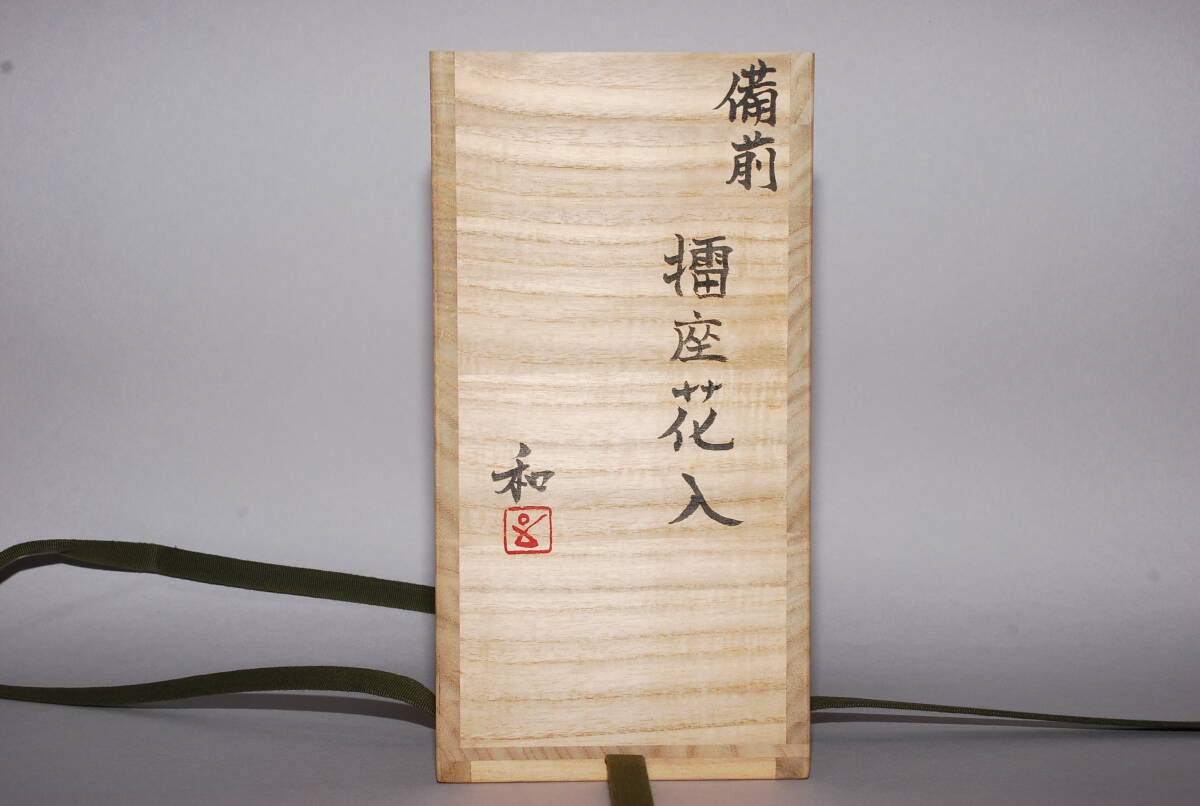 備前
擂座花入
和